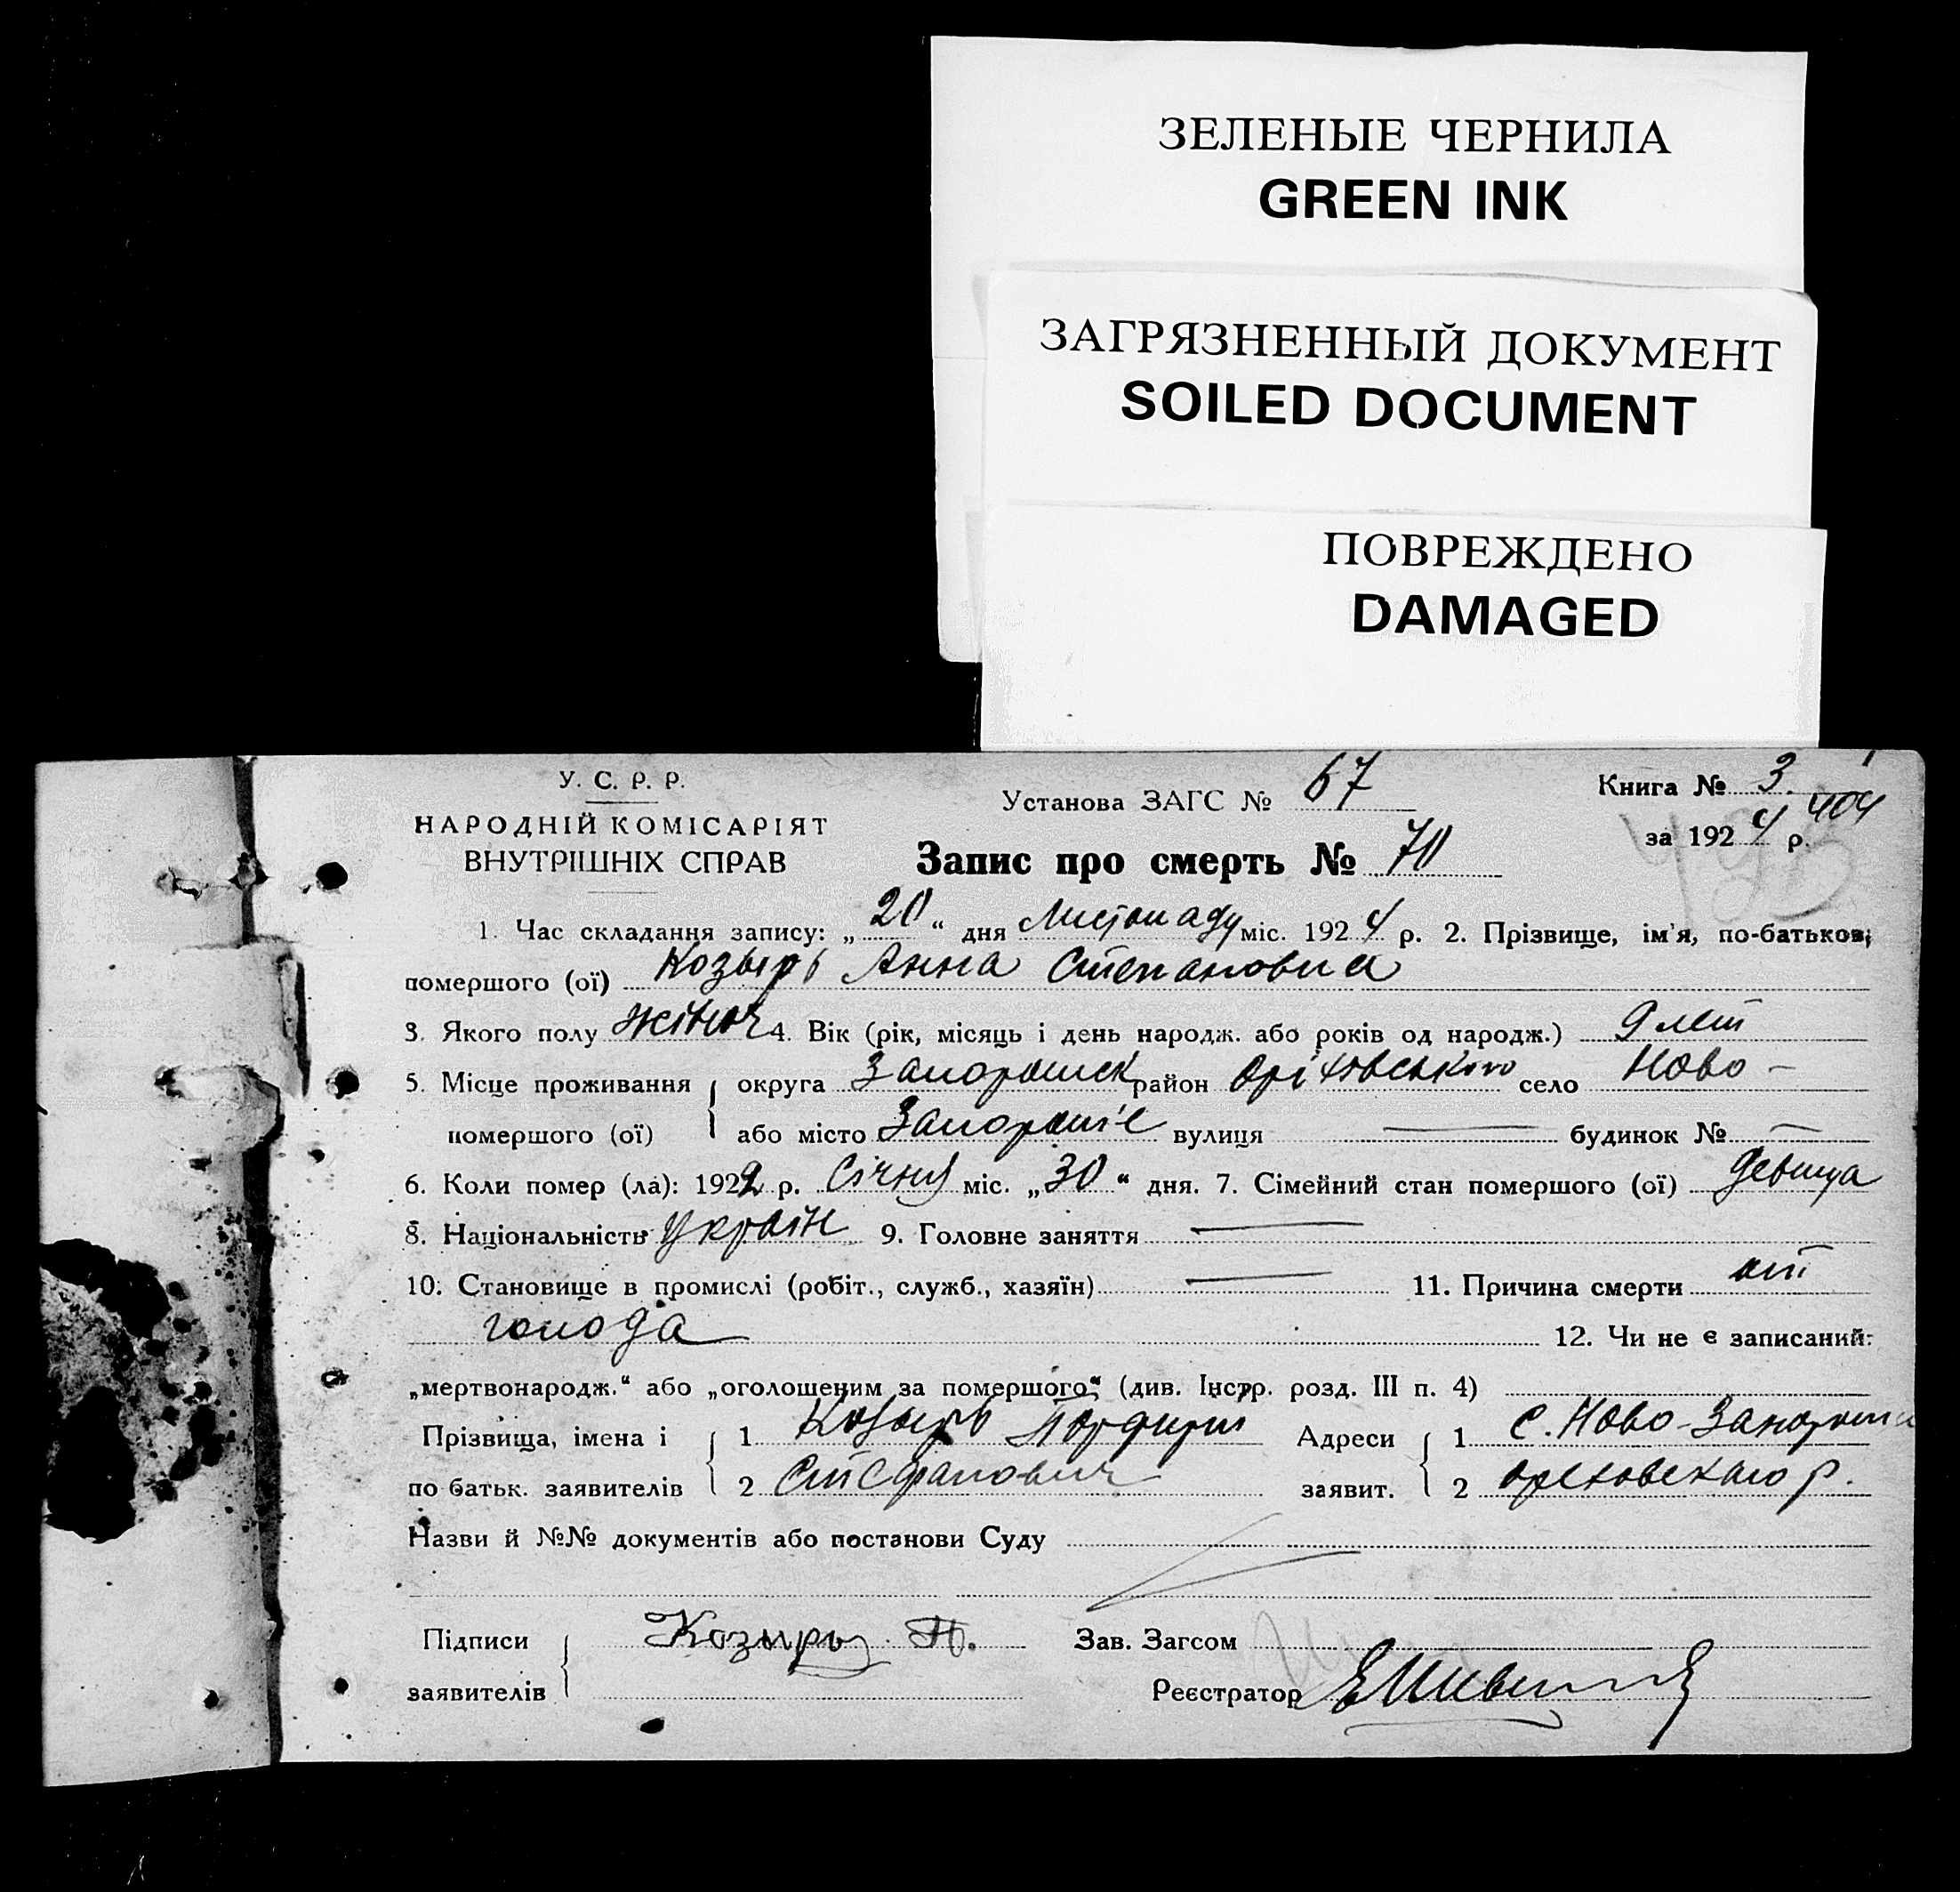 ЗЕЛЕНЫЕ ЧЕРНИЛА
GREEN INK
ЗАГРЯЗНЕННЫЙ ДОКУМЕНТ
SOILED DOCUMENT
ПОВРЕЖДЕНО
DAMAGED
У. С. Р. Р.
НАРОДНІЙ КОМІСАРІЯТ
ВНУТРІШНІХ СПРАВ
Установа ЗАГС № 67
Книга № 3.
за 1924 р. 404
Запис про смерть № 70
1. Час складання запису: „20“ дня Листопаду міс. 1924 р. 2. Прізвище, ім'я, по-батькові
помершого (ої) Козырь Анна Степановна
3. Якого полу жіноч 4. Вік (рік, місяць і день народж. або років од народж.) 9 лет
5. Місце проживання округа Запорожск район Оріховського село Ново-
помершого (ої) або місто Запорожіе вулиця — будинок № —
6. Коли помер (ла): 1922 р. Січня міс. „30“ дня. 7. Сімейний стан помершого (ої) девица
8. Національність україн 9. Головне заняття —
10. Становище в промислі (робіт., служб., хазяїн) — 11. Причина смерти от
голода 12. Чи не є записаний:
„мертвонародж.“ або „оголошеним за помершого“ (див. Інстр. розд. III п. 4)
Прізвища, імена і 1 Козырь Порфирий Адреси 1 с. Ново-Запорожи
по батьк. заявителів 2 Стефанович заявит. 2 Ореховскаго р.
Назви й №№ документів або постанови Суду
Підписи Козырь П. Зав. Загсом
заявителів Реєстратор